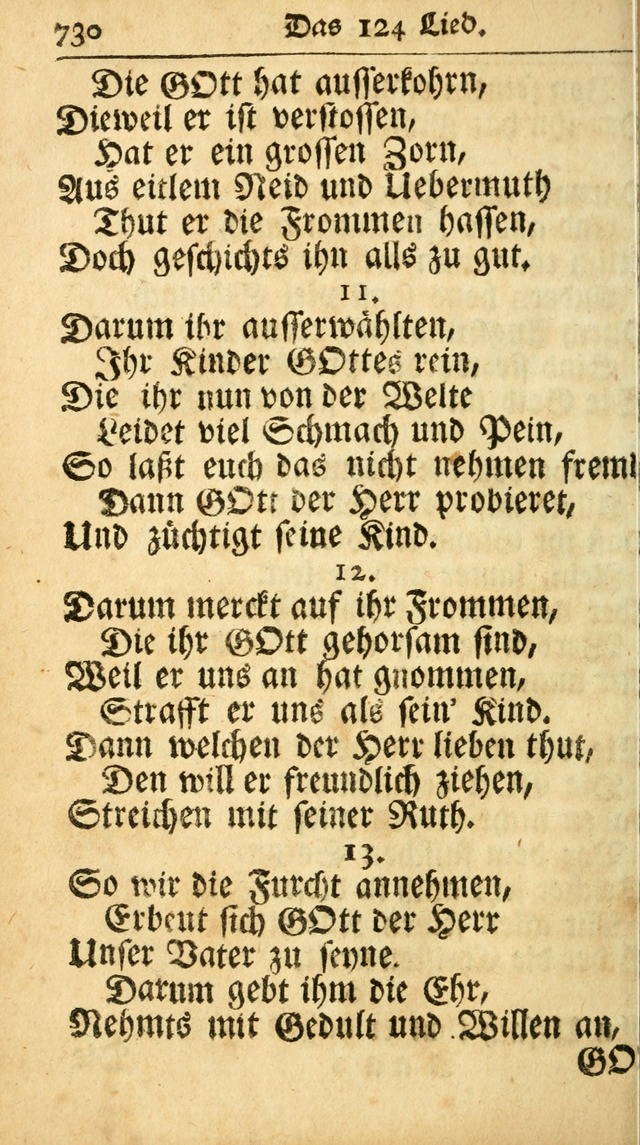 730 Das 124 Lied.
Die GOtt hat ausserkohrn,
Dieweil er ist verstossen,
Hat er ein grossen Zorn,
Aus eitlem Neid und Uebermuth
Thut er die Frommen hassen,
Doch geschichts ihn alls zu gut.
11.
Darum ihr ausserwählten,
Ihr Kinder GOttes rein,
Die ihr nun von der Welte
Leidet viel Schmach und Pein,
So laßt euch das nicht nehmen freml
Dann GOtt der Herr probieret,
Und züchtigt seine Kind.
12.
Darum merckt auf ihr Frommen,
Die ihr GOtt gehorsam sind,
Weil er uns an hat gnommen,
Strafft er uns als sein' Kind.
Dann welchen der Herr lieben thut,
Den will er freundlich ziehen,
Streichen mit seiner Ruth.
13.
So wir die Furcht annehmen,
Erbeut sich GOtt der Herr
Unser Vater zu seyne.
Darum gebt ihm die Ehr,
Nehmts mit Gedult und Willen an,
GO